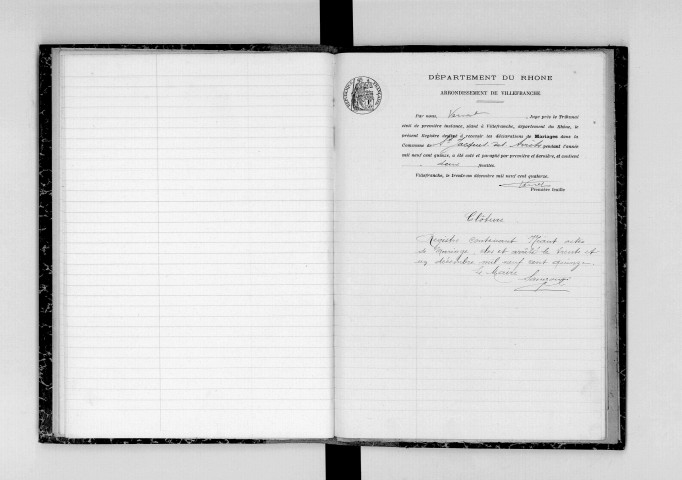 DÉPARTEMENT DU RHONE
ARRONDISSEMENT DE VILLEFRANCHE
Par nous, , Juge près le Tribunal
civil de première instance, séant à Villefranche, département du Rhône, le
présent Registre destiné à recevoir les déclarations de Mariages dans la
Commune de St Jacques des Arrêts pendant l'année
mil neuf cent quinze, a été coté et paraphé par première et dernière, et contient
deux feuilles.
Villefranche, le trente-un décembre mil neuf cent quatorze.
Première feuille
Clôture
Registre contenant Néant actes
de Mariage clos et arrêté le trente et
un décembre mil neuf cent quinze.
Le Maire